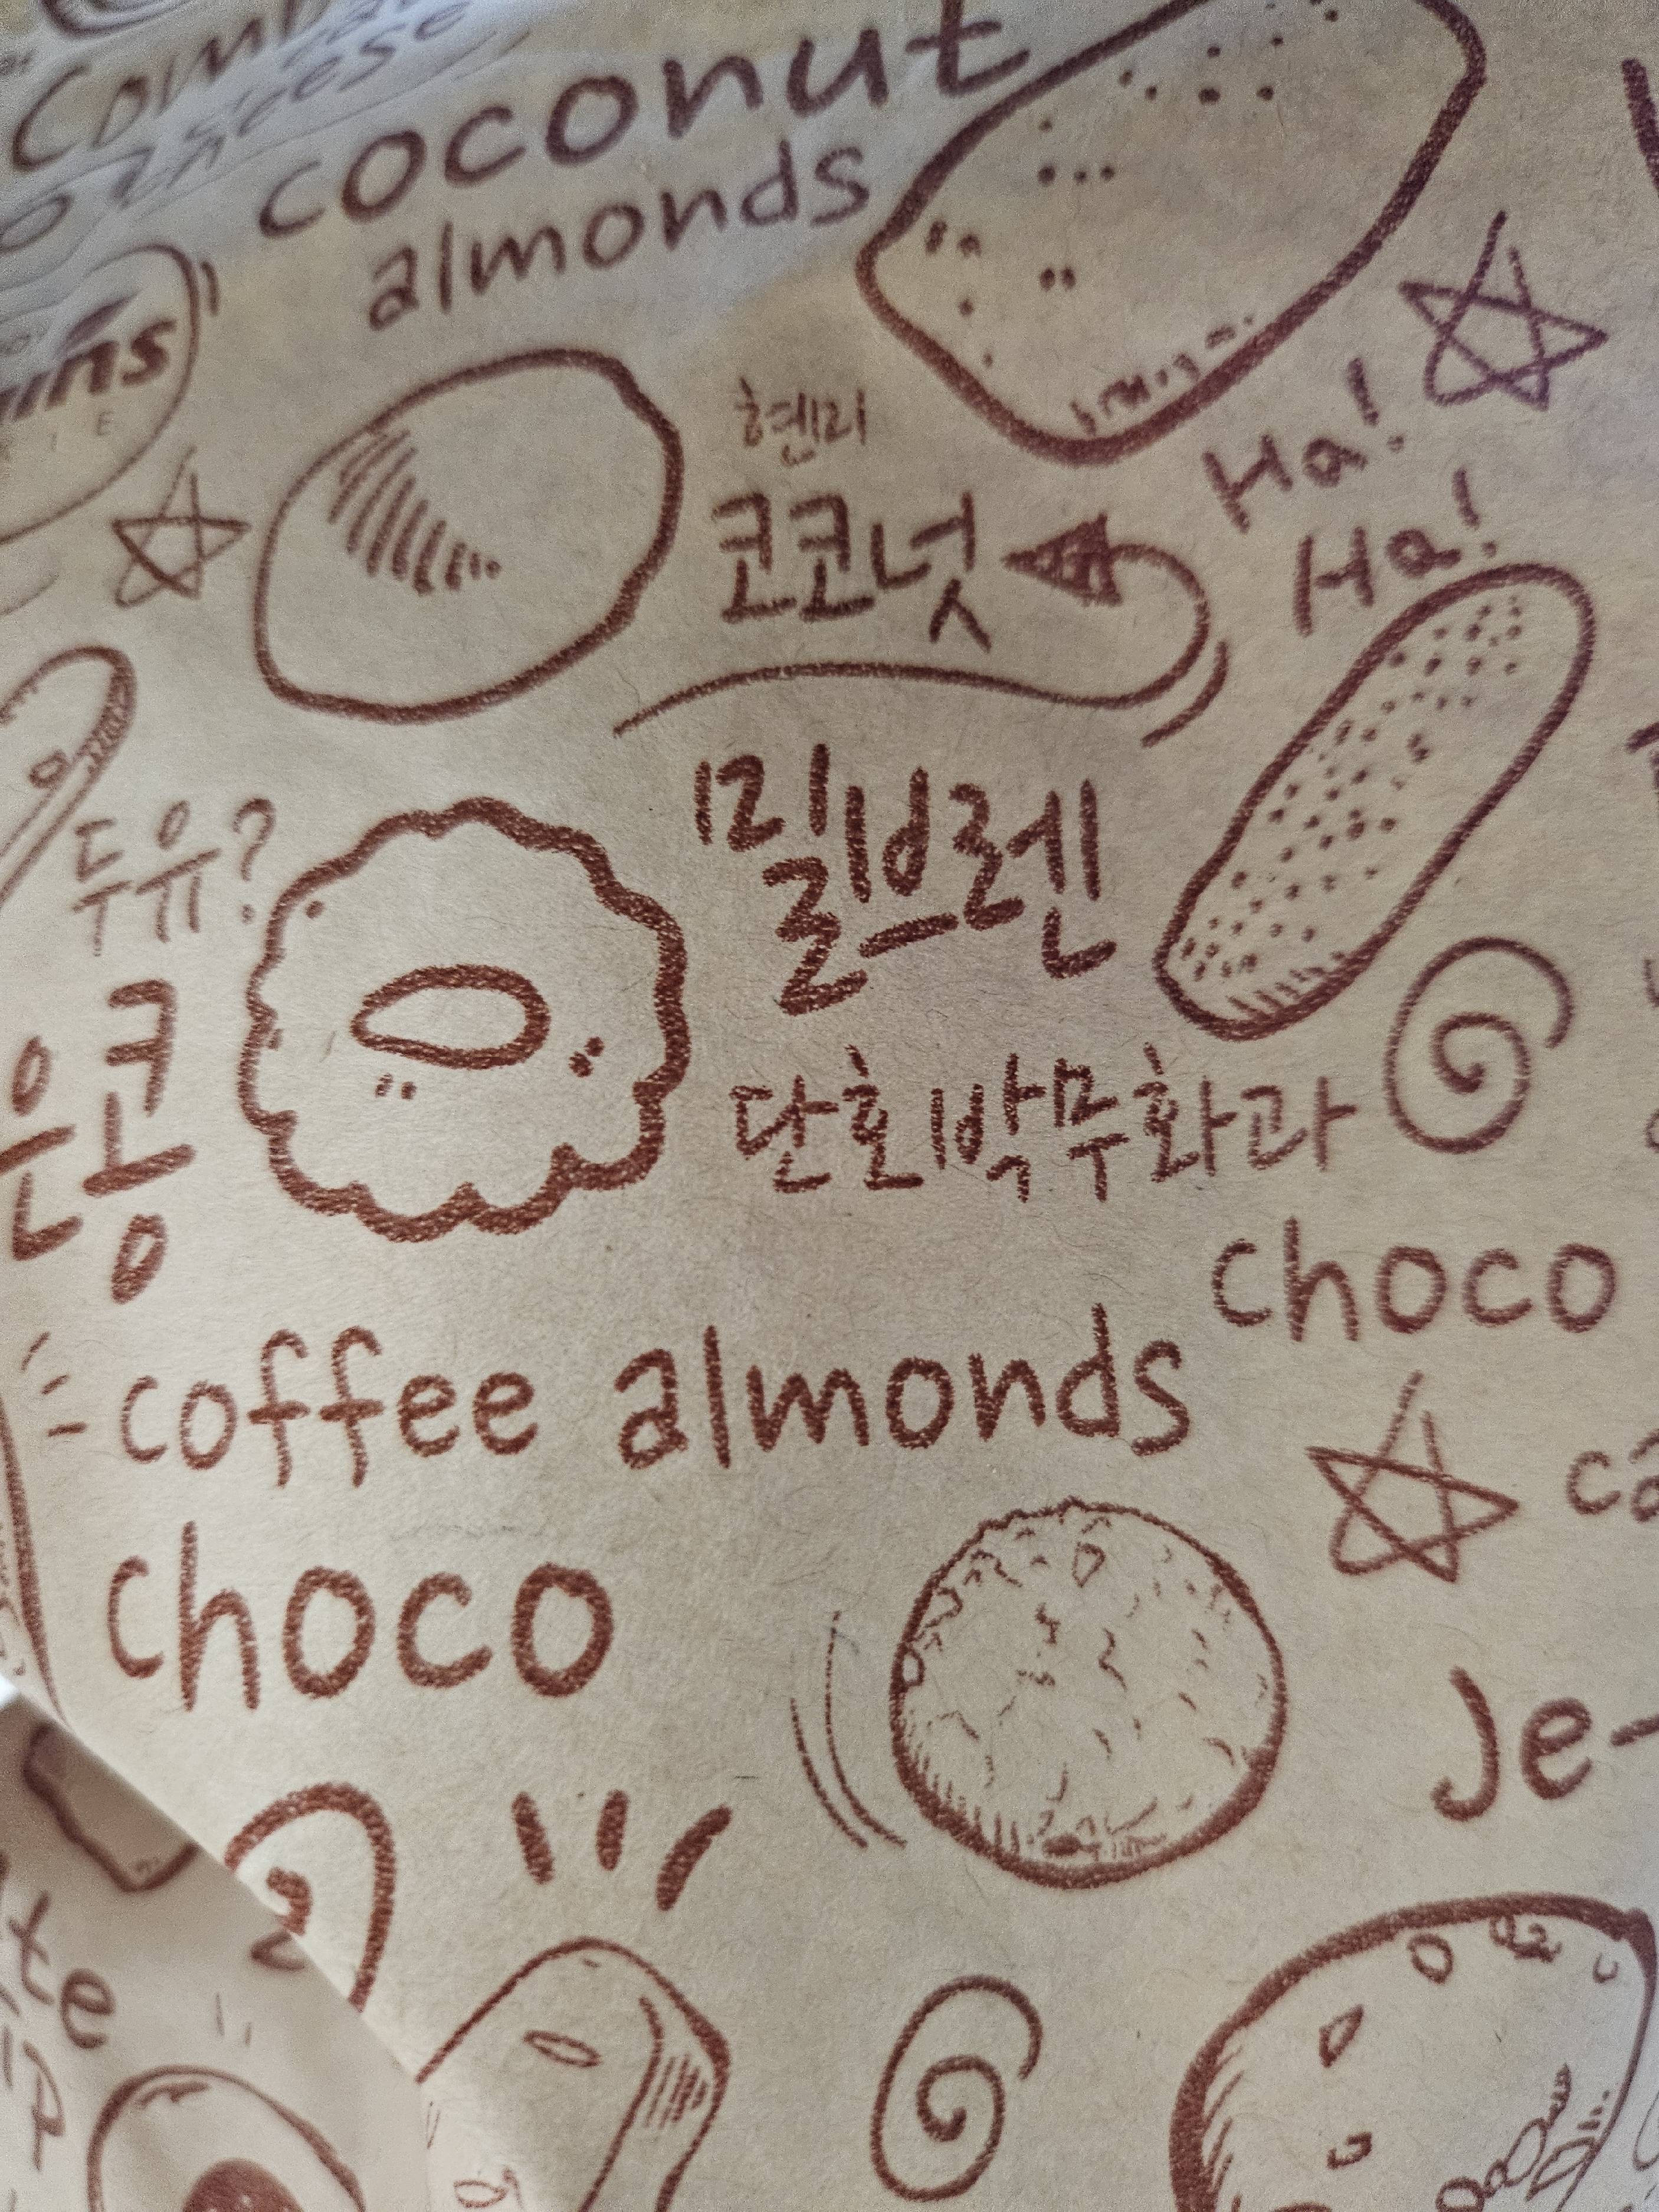 coconut
almonds
Ha!
Ha!
현미
코코넛
밀브렌
두유?
단호박무화과
choco
coffee almonds
choco
Je-